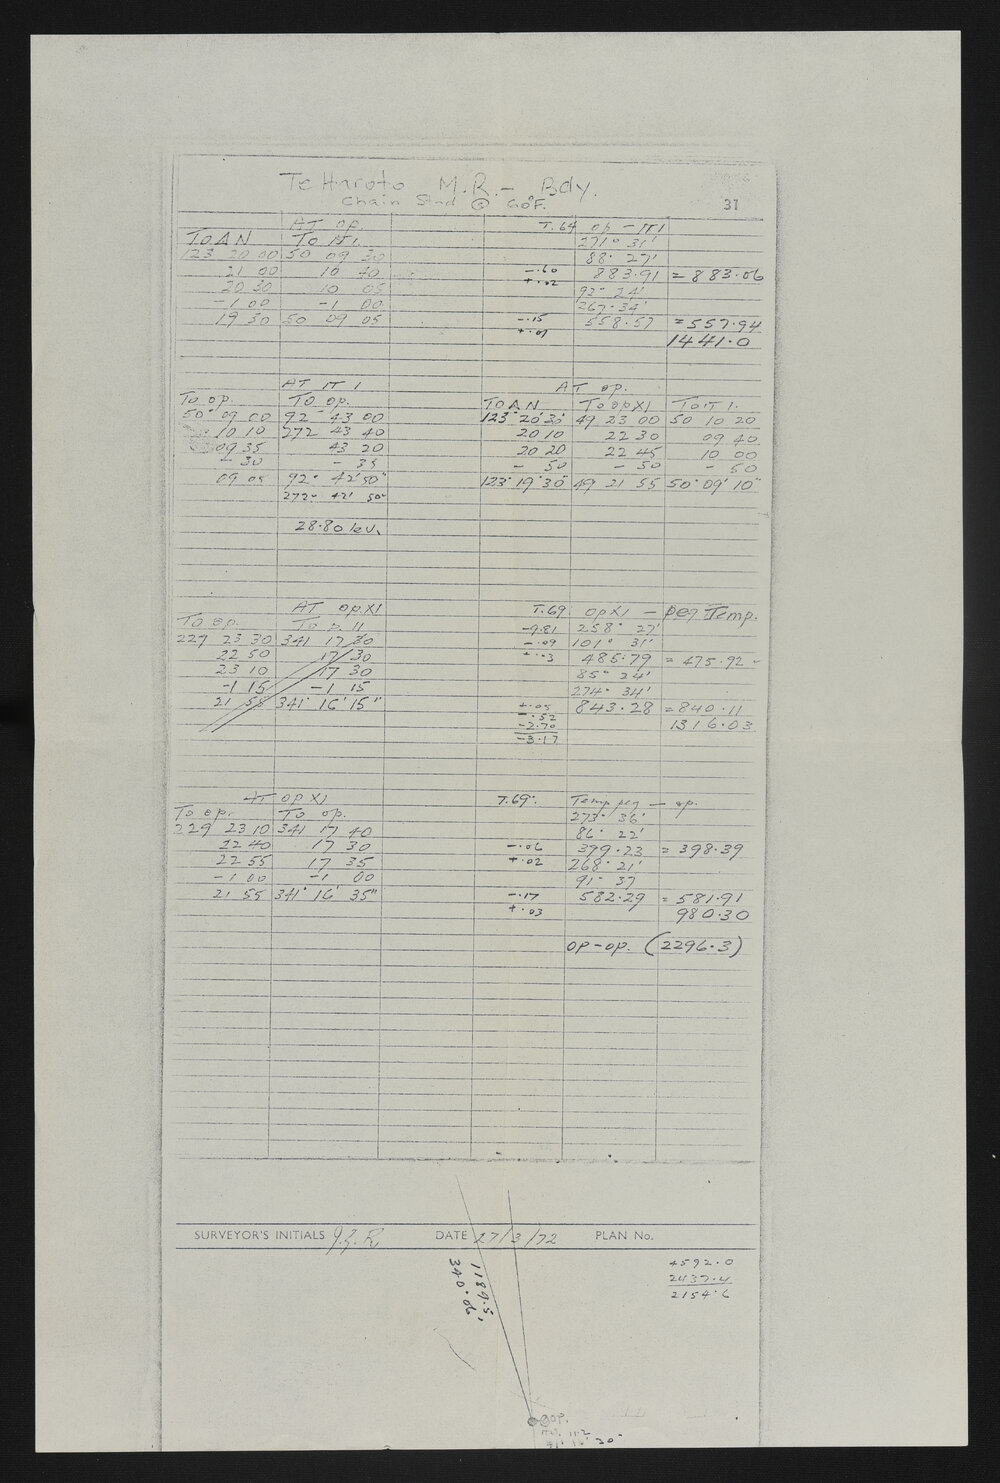 Te Haroto M.R. - Bdy.
Chain Stnd @ 60°F.
31
AT op. T.64 op - IT 1
TO AN TO IT 1. 271° 31'
123 20 00 50 09 30 88° 27'
21 00 10 40 -.60 883.91 = 883.06
20 30 10 05 +.02 92° 24'
-1 00 -1 00 267° 34'
19 30 50 09 05 -.15 558.57 = 557.94
+.01 1441.0
AT IT 1 AT op.
To op. TO op. TO AN To op XI To IT 1.
50° 09 00 92 43 00 123° 20' 30" 49 23 00 50 10 20
10 10 272 43 40 20 10 22 30 09 40
09 35 43 20 20 20 22 45 10 00
- 30 - 35 - 50 - 50 - 50
09 05 92° 42' 50" 123° 19' 30" 49 21 55 50° 09' 10"
272° 42' 50"
28.80 lev.
AT op.XI T.69 op XI - peg Temp.
To op. To 11 -9.81 258° 27'
227 23 30 341 17 30 -.09 101° 31'
22 50 17 30 +.03 485.79 = 475.92
23 10 17 30 85° 24'
-1 15 -1 15 274° 34'
21 55 341° 16' 15" +.05 843.28 = 840.11
-.52 1316.03
-2.70
-3.17
AT op XI T.69. Temp peg - op.
To op. To op. 273° 36'
229 23 10 341 17 40 86° 22'
22 40 17 30 -.06 399.23 = 398.39
22 55 17 35 +.02 268° 21'
-1 00 -1 00 91° 37
21 55 341° 16' 35" -.17 582.29 = 581.91
+.03 980.30
op-op. (2296.3)
SURVEYOR'S INITIALS DATE 27/3/72 PLAN No.
4592.0
2437.4
2154.6
1189.5
340.06
op.
30"